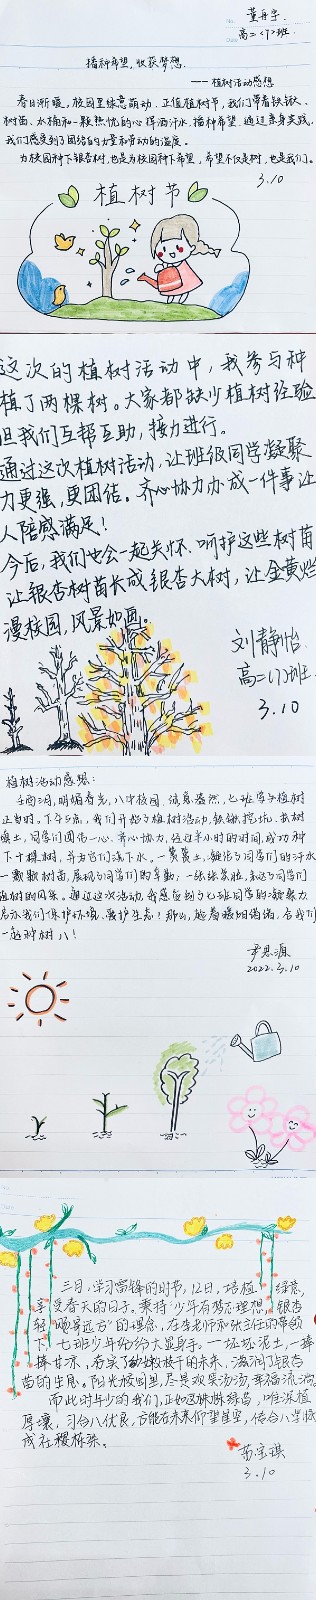 董冉宇
高二〈7〉班
播种希望,收获梦想.
——植树活动感想
春日渐暖,校园里绿意萌动.正值植树节,我们带着铁锹、
树苗、水桶和一颗热忱的心挥洒汗水,播种希望.通过亲身实践,
我们感受到了团结的力量和劳动的温度。
为校园种下银杏树,也是为校园种下希望,希望不仅是树,也是我们。
3.10
植树节
这次的植树活动中,我参与种
植了两棵树。大家都缺少植树经验
但我们互帮互助,接力进行。
通过这次植树活动,让班级同学凝聚
力更强,更团结。齐心协力办成一件事让
人倍感满足!
今后,我们也会一起关怀、呵护这些树苗
让银杏树苗长成银杏大树,让金黄烂
漫校园,风景如画。
刘静怡
高二〈7〉班
3.10
植树活动感想:
壬寅三月,明媚春光,八中校园,诗意盎然,七班学子植树
正当时。下午5点,我们开始了植树活动,铁锹挖坑,扶树
填土,同学们团结一心,齐心协力,经过半小时的时间,成功种
下十棵树,并为它们浇下水。一黄黄土,凝结了同学们的汗水
一颗颗树苗,展现了同学们的辛勤;一张张笑脸,
植树的风采。通过这次活动,我感受到了七班同学的凝聚力
启示我们保护环境,爱护生态!那么,趁着暖阳倘倘,合我们
一起种树八!
尹思源
2022.3.10
三月,学习雷锋的时节,12日,培植 绿意,
享受春天的日子。秉持“少年有梦不理想,银杏
轻 远方”的理念,在李老师和张主任的带领
下,七班少年纷纷大显身手。一抔抔泥土,一捧
捧甘凉,夯实了 枝干的未来,滋润了银杏
苗的生息。阳光校园里,尽是欢果汤汤,幸福流淌。
而此时年少的我们,正如这株株绿苗,唯深植
厚壤,习合八优良,方能在未来仰望星空,
成社稷栋梁。
苗宝琪
3.10